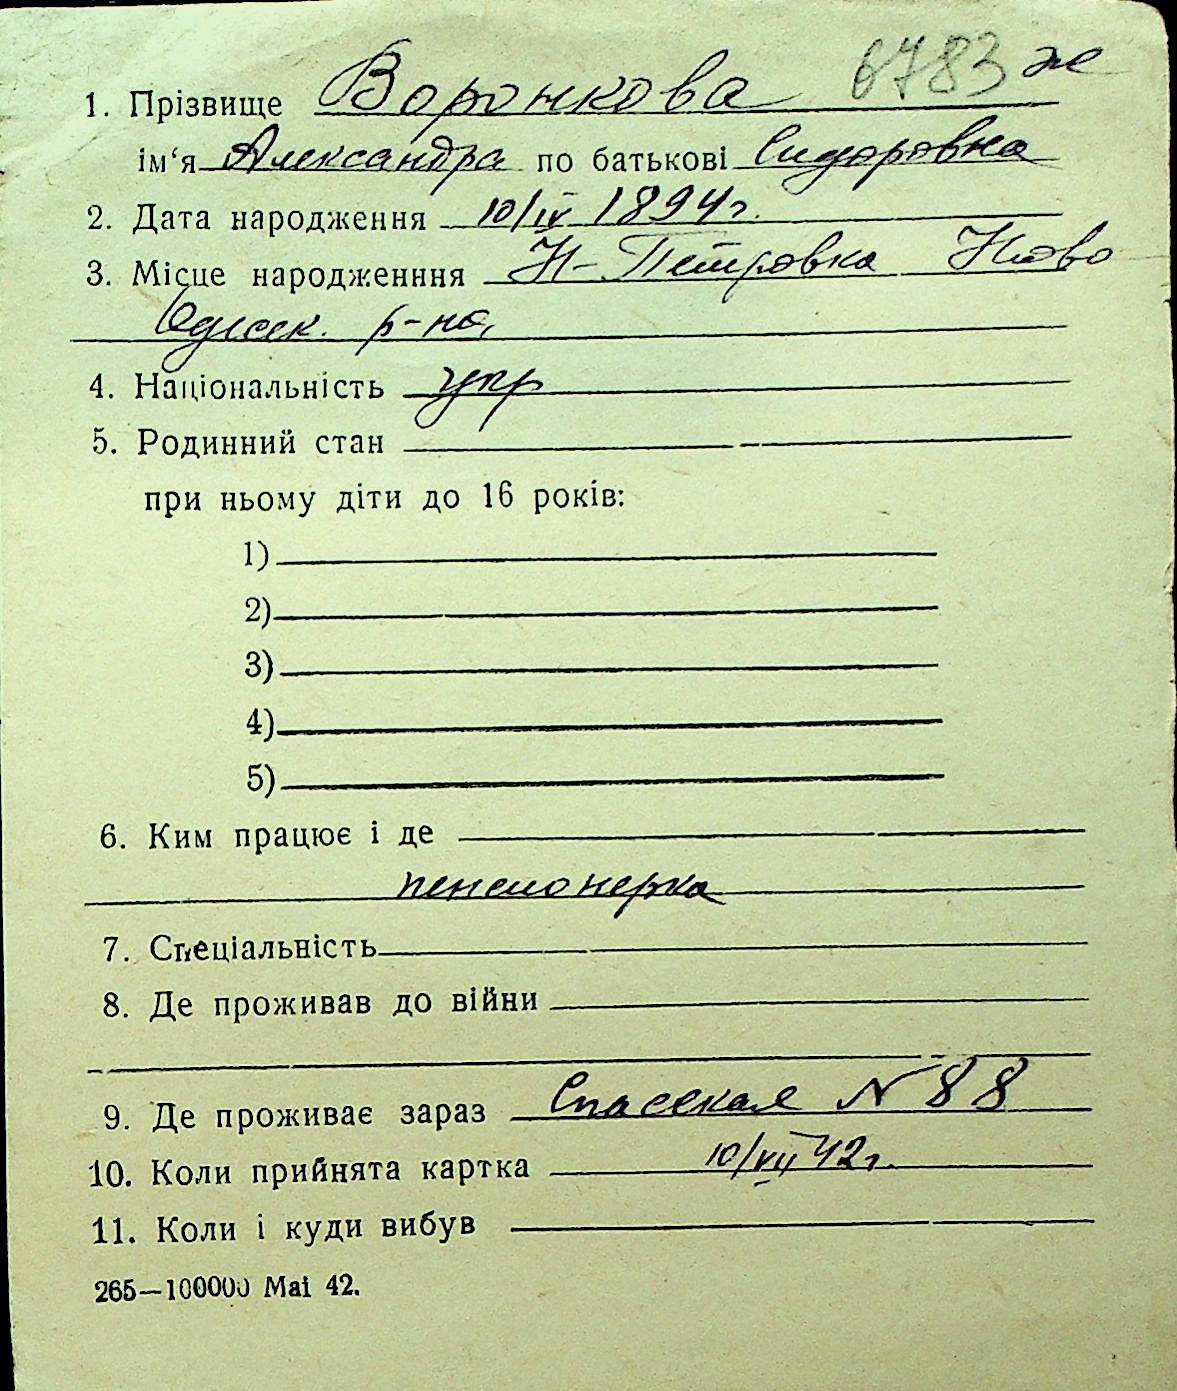 6783 ж
1. Прізвище Воронкова
ім‘я Александра по батькові Сидоровна
2. Дата народження 10/IV 1894г.
3. Місце народженння Н-Петровка Ново
Одесск. р-на,
4. Національність укр
5. Родинний стан
при ньому діти до 16 років:
1)
2)
3)
4)
5)
6. Ким працює і де
пенсионерка
7. Спеціальність
8. Де проживав до війни
9. Де проживає зараз Спасская N 88
10. Коли прийнята картка 10/VII 42г.
11. Коли і куди вибув
265—100000 Mai 42.